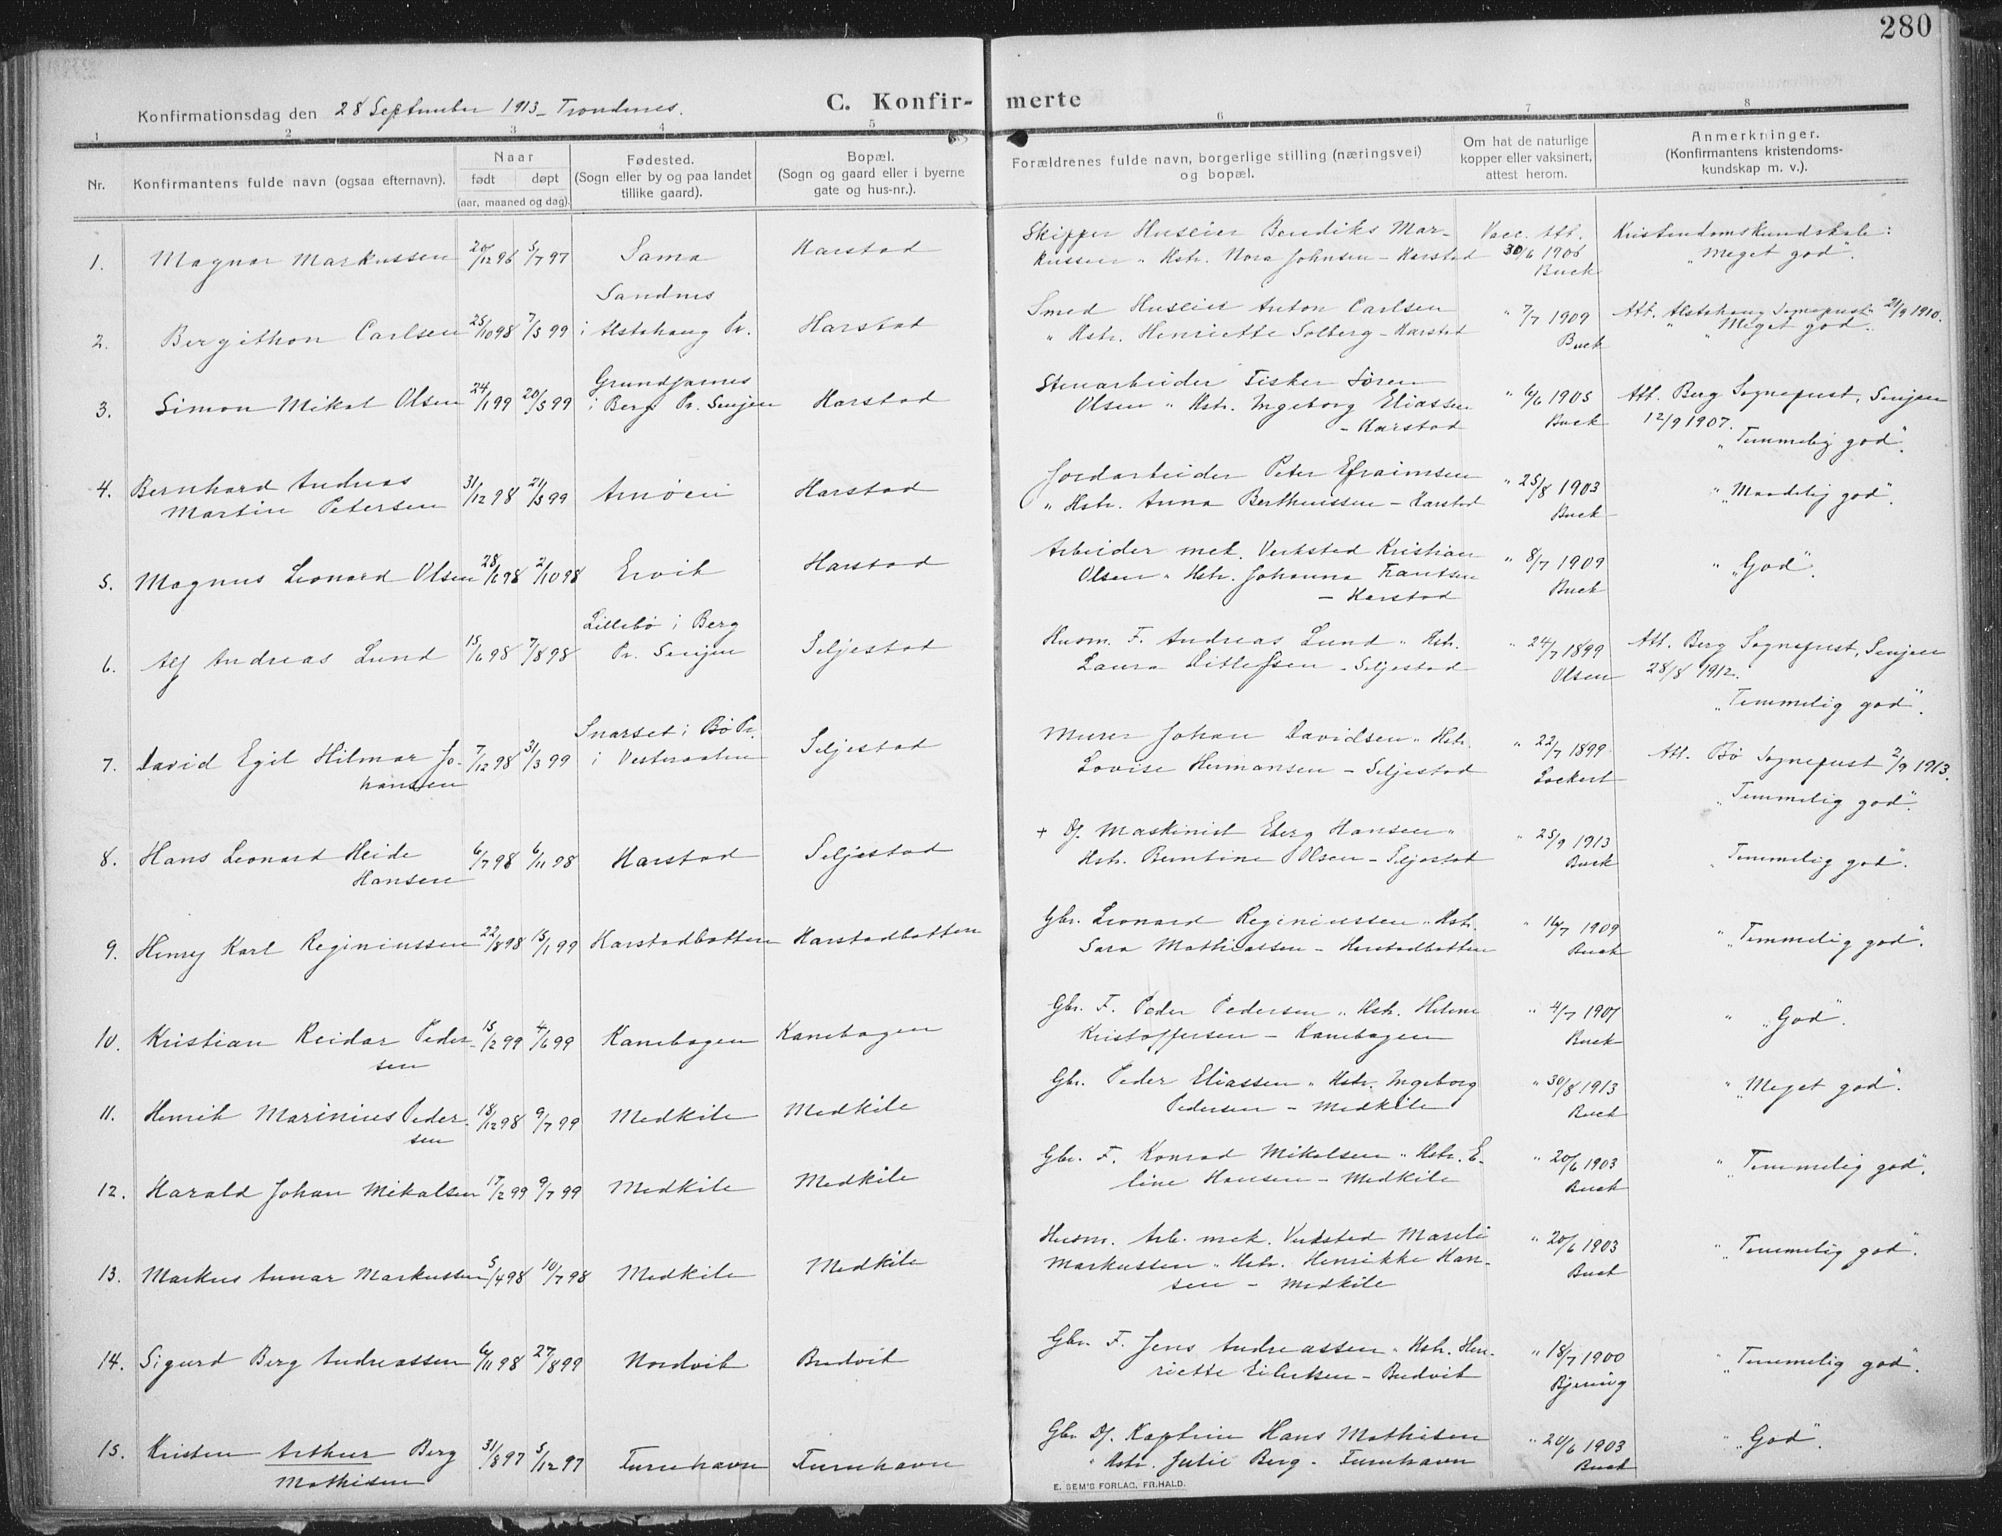 280
Konfirmationsdag den 28 September 1913 - Trondenes.
C. Konfir- merte
1 2 3 4 5 6 7 8
Nr.
Konfirmantens fulde navn (ogsaa efternavn).
Naar
født døpt
(aar, maaned og dag).
Fødested.
(Sogn eller by og paa landet
tillike gaard).
Bopæl.
(Sogn og gaard eller i byerne
gate og hus-nr.).
Forældrenes fulde navn, borgerlige stilling (næringsvei)
og bopæl.
Om hat de naturlige
kopper eller vaksinert,
attest herom.
Anmerkninger.
(Konfirmantens kristendoms-
kundskap m. v.).
Skipper Huseier Bendiks Mar- Vacc. Att. Kristendomskundskab:
1. Magnar Markussen 20/12 96 5/7 97 Sama Harstad kussen " Hstr. Nora Johnsen - Harstad 30/6 1906 "Meget god".
Buck
Sandnes
Smed Huseier Anton Carlsen " 7/7 1909 Att. Alstahaug Sognepræst 21/9 1910.
2. Bergithon Carlsen 25/10 98 7/5 99 i Alstahaug Pr. Harstad " Hstr. Henriette Solberg - Harstad Buck " "Meget god".
Grundfarnes Stenarbeider Fisker Søren
3. Simon Mikal Olsen 24/1 99 20/5 99 i Berg Pr. Senjen Harstad Olsen " Hstr. Ingeborg Eliassen " 6/6 1905 Att. Berg Sognepræst, Senjen
- Harstad Buck 12/9 1907.
"Temmelig god".
4. Bernhard Andreas 31/12 98 21/5 99 Arnøen Harstad Jordarbeider Peter Efraimsen " 25/8 1903 " "Maadelig god".
Martin Petersen " Hstr. Anna Bertheussen - Harstad Buck
5. Magnus Leonard Olsen 28/1 98 2/10 98 Ervik Harstad Arbeider mek. Verksted Kristian " 8/7 1909 " "God".
Olsen " Hstr. Johanna Frantsen Buck
- Harstad
Lillebø i Berg Husm. F. Andreas Lund " Hstr. " 24/7 1899 Att. Berg Sognepræst, Senjen
6. Alf Andreas Lund 15/6 98 7/8 98 Pr. Senjen Seljestad Laura Ditlefsen - Seljestad Olsen 28/8 1912.
"Temmelig god".
Snarset i Bø Pr. Murer Johan Davidsen " Hstr. " 22/7 1899
7. David Egil Hilmar Jo- 7/12 98 31/3 99 i Vesteraalen Seljestad Lovise Hermansen - Seljestad Lockert Att. Bø Sognepræst 2/9 1913.
hansen "Temmelig god".
+ Df. Maskinist Eberg Hansen " " 25/9 1913
8. Hans Leonard Heide 6/7 98 6/11 98 Harstad Seljestad Hstr. Berntine Olsen - Seljestad Buck "Temmelig god".
Hansen
9. Henry Karl Reginiussen 22/8 98 15/1 99 Harstadbotten Harstadbotten Gbr. Leonard Reginiussen " Hstr. " 16/7 1909 " "Temmelig god".
Sara Mathiassen - Harstadbotten Buck
10. Kristian Reidar Peder- 15/2 99 4/6 99 Kanebogen Kanebogen Gbr. F. Peder Pedersen " Hstr. Helene " 4/7 1907 " "God".
sen Kristoffersen - Kanebogen Buck
11. Henrik Marinius Peder- 18/12 98 9/7 99 Medkile Medkile Gbr. Peder Eliassen " Hstr. Ingeborg " 30/8 1913 " "Meget god".
sen Pedersen - Medkile Buck
12. Harald Johan Mikalsen 17/2 99 9/7 99 Medkile Medkile Gbr. F. Konrad Mikalsen " Hstr. E- " 20/6 1903 " "Temmelig god".
line Hansen - Medkile Buck
13. Markus Annar Markussen 5/4 98 10/7 98 Medkile Medkile Husm. Arb. mek. Verksted Mareli " 20/6 1903 " "Temmelig god".
Markussen " Hstr. Henrikke Han- Buck
sen - Medkile
14. Sigurd Berg Andreassen 6/11 98 27/8 99 Nordvik Brudvik Gbr. F. Jens Andreassen " Hstr. Hen- " 18/7 1900 " "Temmelig god".
riette Eilertsen - Brudvik Bjering
15. Kristen Arthur Berg 31/8 97 5/12 97 Furuhavn Furuhavn Gbr. Df. Kaptein Hans Mathisen " 20/6 1903 " "God".
Mathisen " Hstr. Julie Berg - Furuhavn Buck
E. SEM'S FORLAG, FR.HALD.